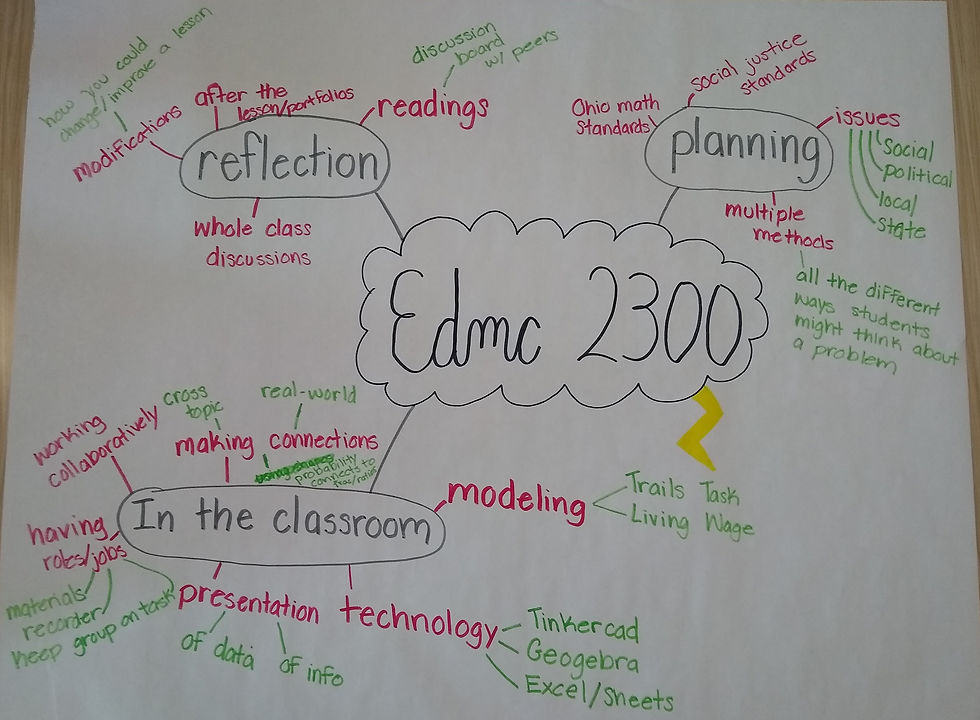 how you could
change/improve a lesson
modifications
after the
lesson/portfolios
discussion
board
w/ peers
readings
reflection
whole class
discussions
Ohio math
Standards
social justice
standards
planning
issues
social
political
local
state
multiple
methods
all the different
ways students
might think about
a problem
Edmc 2300
working
collaboratively
cross
topic
real-world
making connections
probability
connects to
frac/ratios
In the classroom
modeling
Trails Task
Living Wage
having
roles/jobs
materials
recorder
keep group on task
presentation
of data
of info
technology
Tinkercad
Geogebra
Excel/Sheets